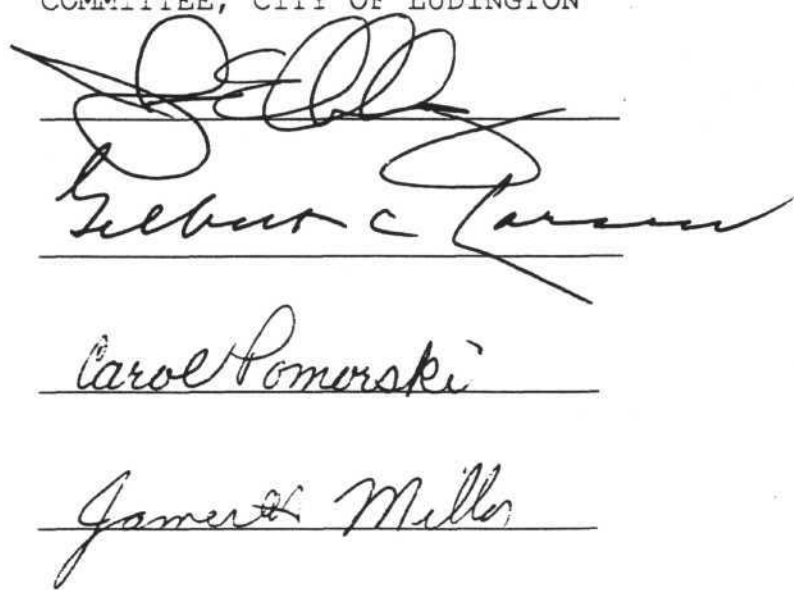 COMMITTEE, CITY OF LUDINGTON
Gilbert C Larsen
Carol Pomorski
James H Miller